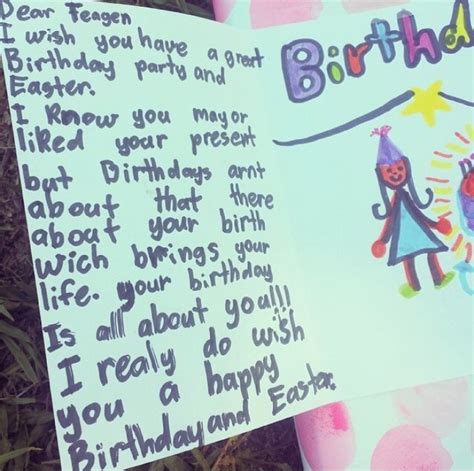 Dear Feagen
I wish you have a great
Birthday party and
Easter.
I Know you may or
liked your present
but Birthdays arnt
about that there
about your birth
wich brings your
life. your birthday
Is all about you!!!
I realy do wish
you a happy
Birthday and Easter.
Birthda